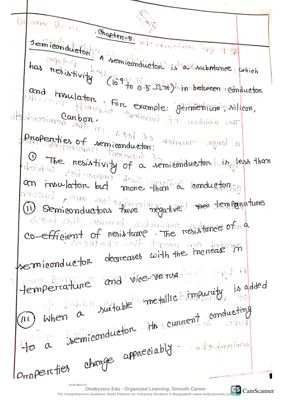 Chapter-5.
Semiconductor: A semiconductor is a substance which
has resistivity (10⁻⁴ to 0.5 Ωm) in between conductor
and insulator. For example: germenium, silicon,
Carbon.
Properties of semiconductor:
(i) The resistivity of a semiconductor is less than
an insulator but more than a conductor.
(ii) Semiconductors have negative temperature
co-efficient of resistance. The resistance of a
semiconductor decreases with the increase in
temperature and vice-versa
(iii) When a suitable metallic impurity is added
to a semiconductor its current conducting
Properties change appreciably.
Onebyzero Edu - Organized Learning, Smooth Career
The Comprehensive Academic Study Platform for University Students in Bangladesh
CamScanner